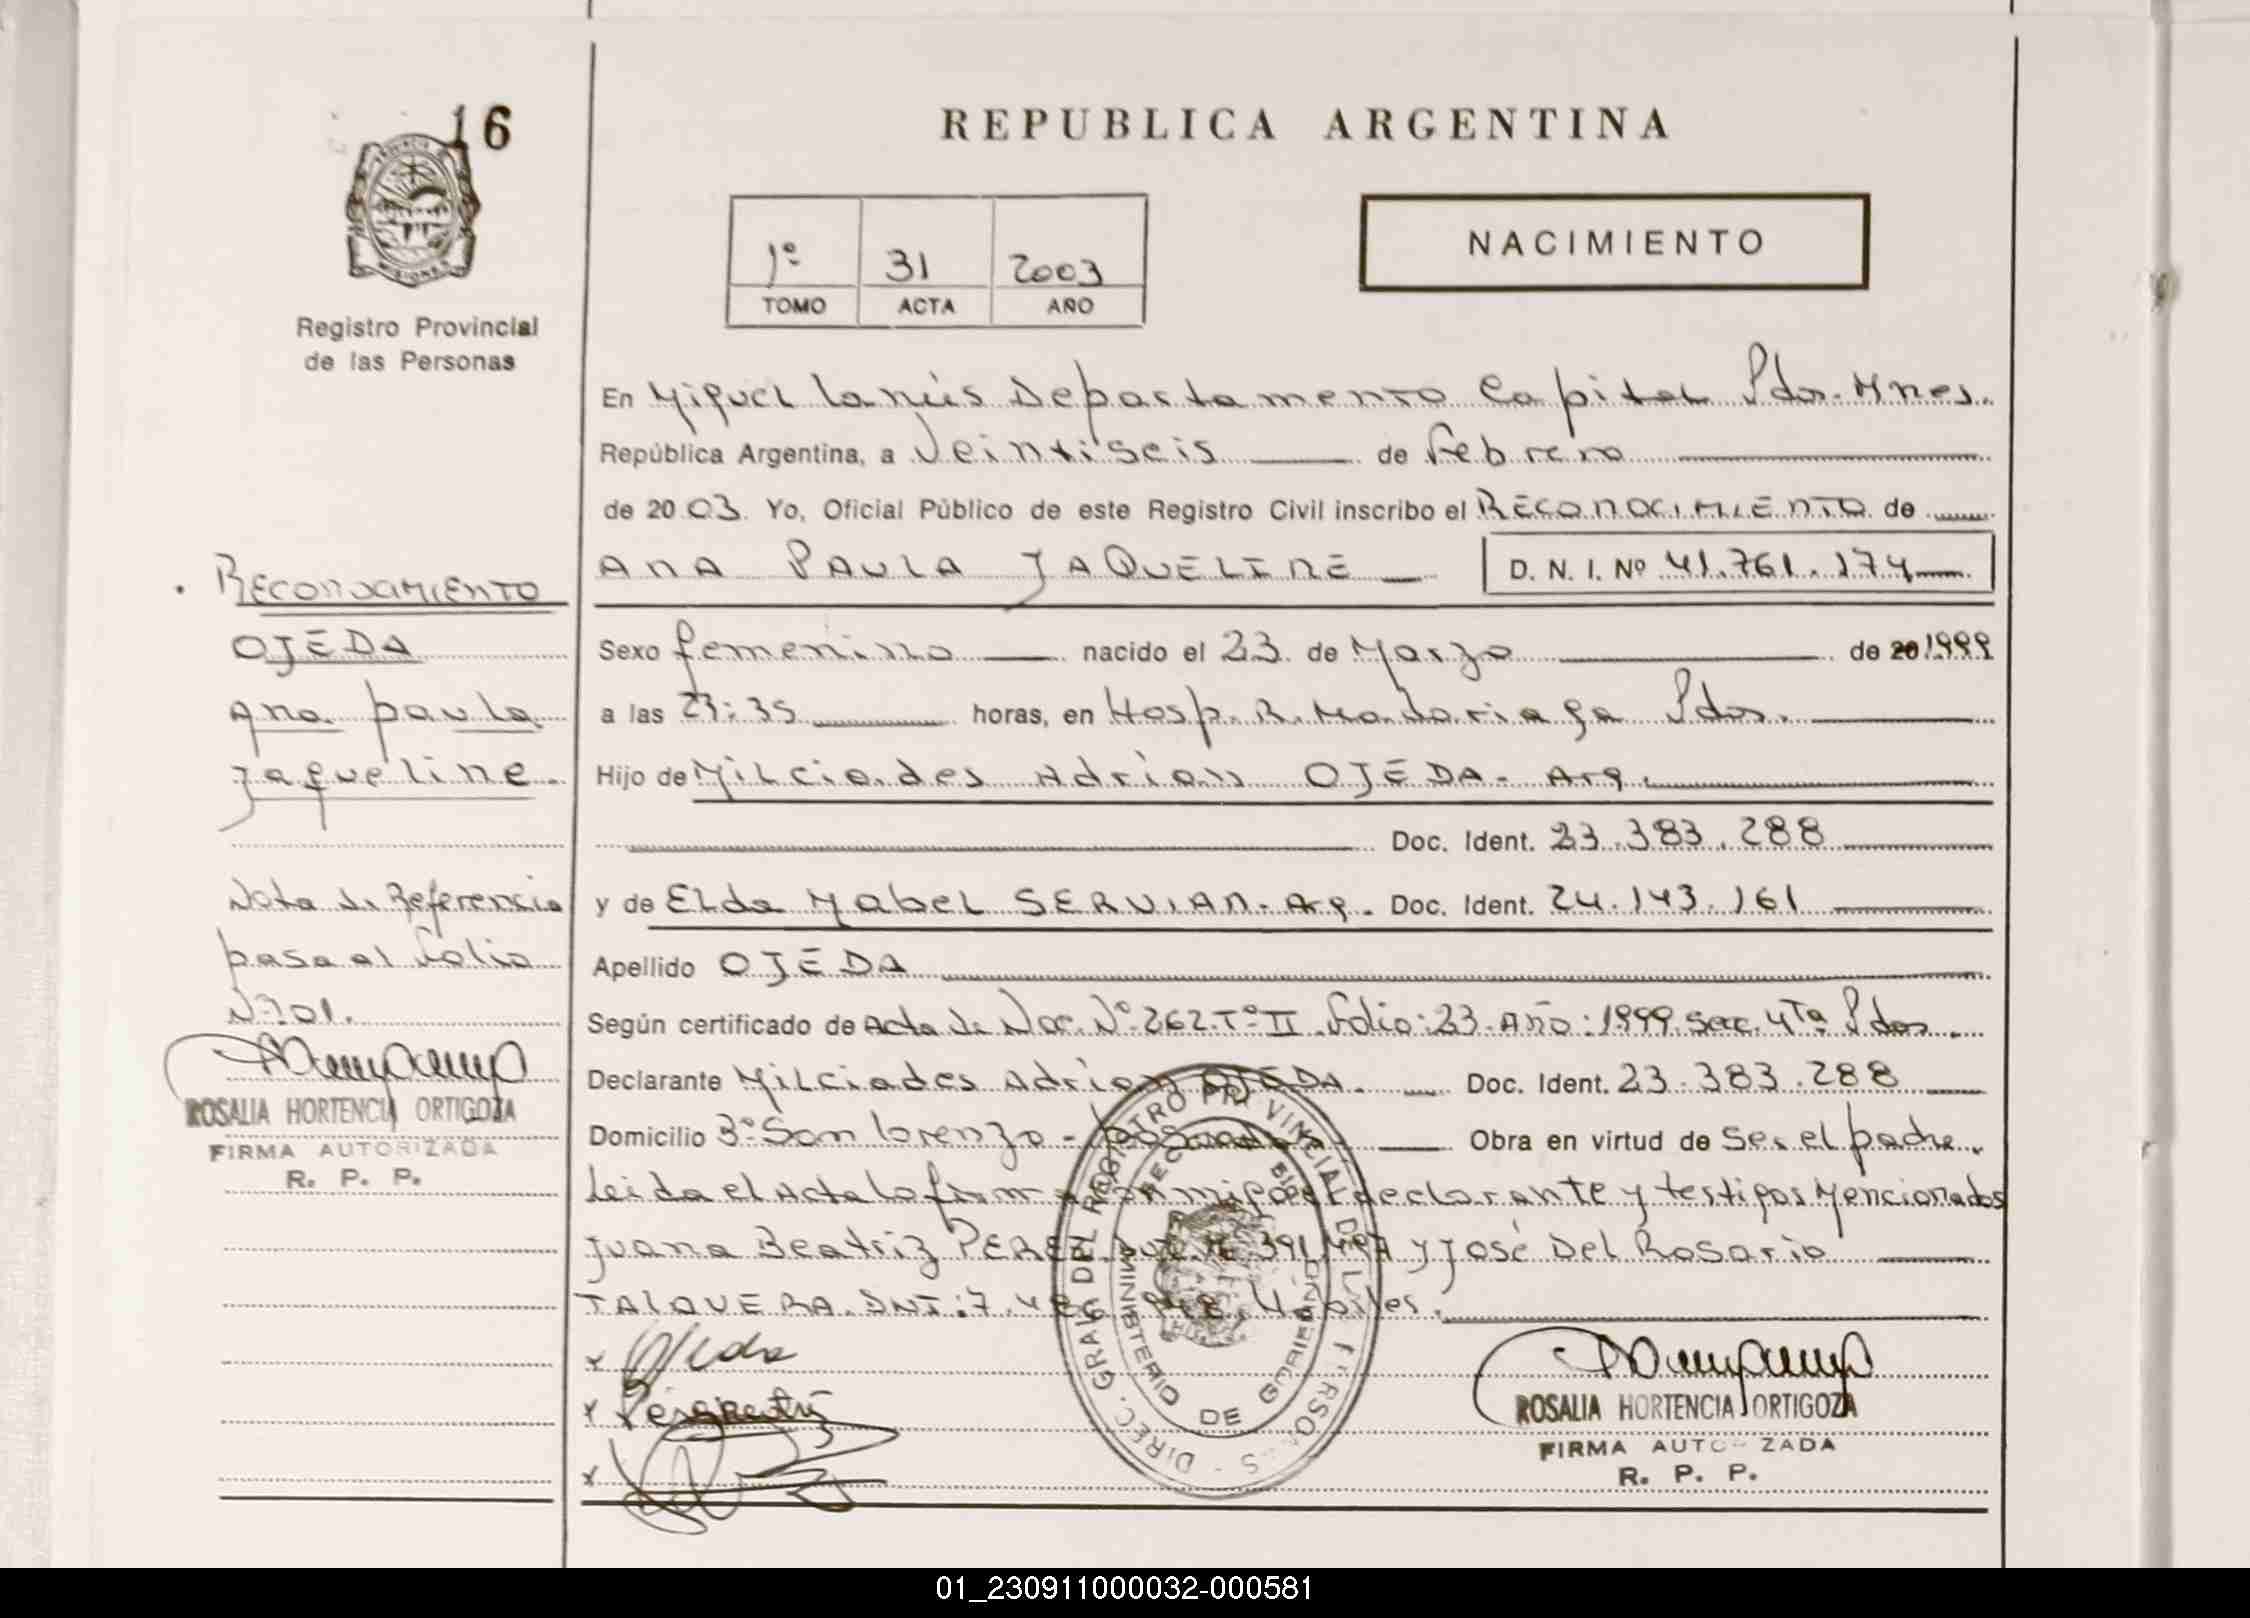 16
PROVINCIA DE
MISIONES
Registro Provincial
de las Personas
REPUBLICA ARGENTINA
1º 31 2003
TOMO ACTA AÑO
NACIMIENTO
En Miguel Lanús Departamento Capital Pdas. Mnes.
República Argentina, a Veintiseis de Febrero
de 2003. Yo, Oficial Público de este Registro Civil inscribo el RECONOCIMIENTO de
ANA PAULA JAQUELINE D. N. I. Nº 41.761.174
Sexo femenino nacido el 23 de Marzo de 20 1999
a las 23:35 horas, en Hosp. R. Madariaga Pdas.
Hijo de Milciades Adrian OJEDA - Arg.
Doc. Ident. 23.383.288
y de Elda Mabel SERVIAN - Arg. Doc. Ident. 24.143.161
Apellido OJEDA
Según certificado de Acta de Nac. Nº 262 Tº II Folio: 23 Año: 1999 Sec. 4Ta Pdas.
Declarante Milciades Adrian OJEDA. Doc. Ident. 23.383.288
Domicilio 3º San Lorenzo - Posadas - Obra en virtud de Ser el padre.
Leida el Acta la firman conmigo el declarante y testigos Mencionados
Juana Beatriz PEREZ y José Del Rosario
TALQUERA DNI: 7. Habiles.
RECONOCIMIENTO
OJEDA
Ana Paula
Jaqueline
Nota de Referencia
pasa al folio
Nº 01.
ROSALIA HORTENCIA ORTIGOZA
FIRMA AUTORIZADA
R. P. P.
x Ojeda
x
x
DIREC. GRAL DEL REGISTRO PROVINCIAL DE LAS PERSONAS
MINISTERIO DE GOBIERNO
ROSALIA HORTENCIA ORTIGOZA
FIRMA AUTORIZADA
R. P. P.
01_230911000032-000581